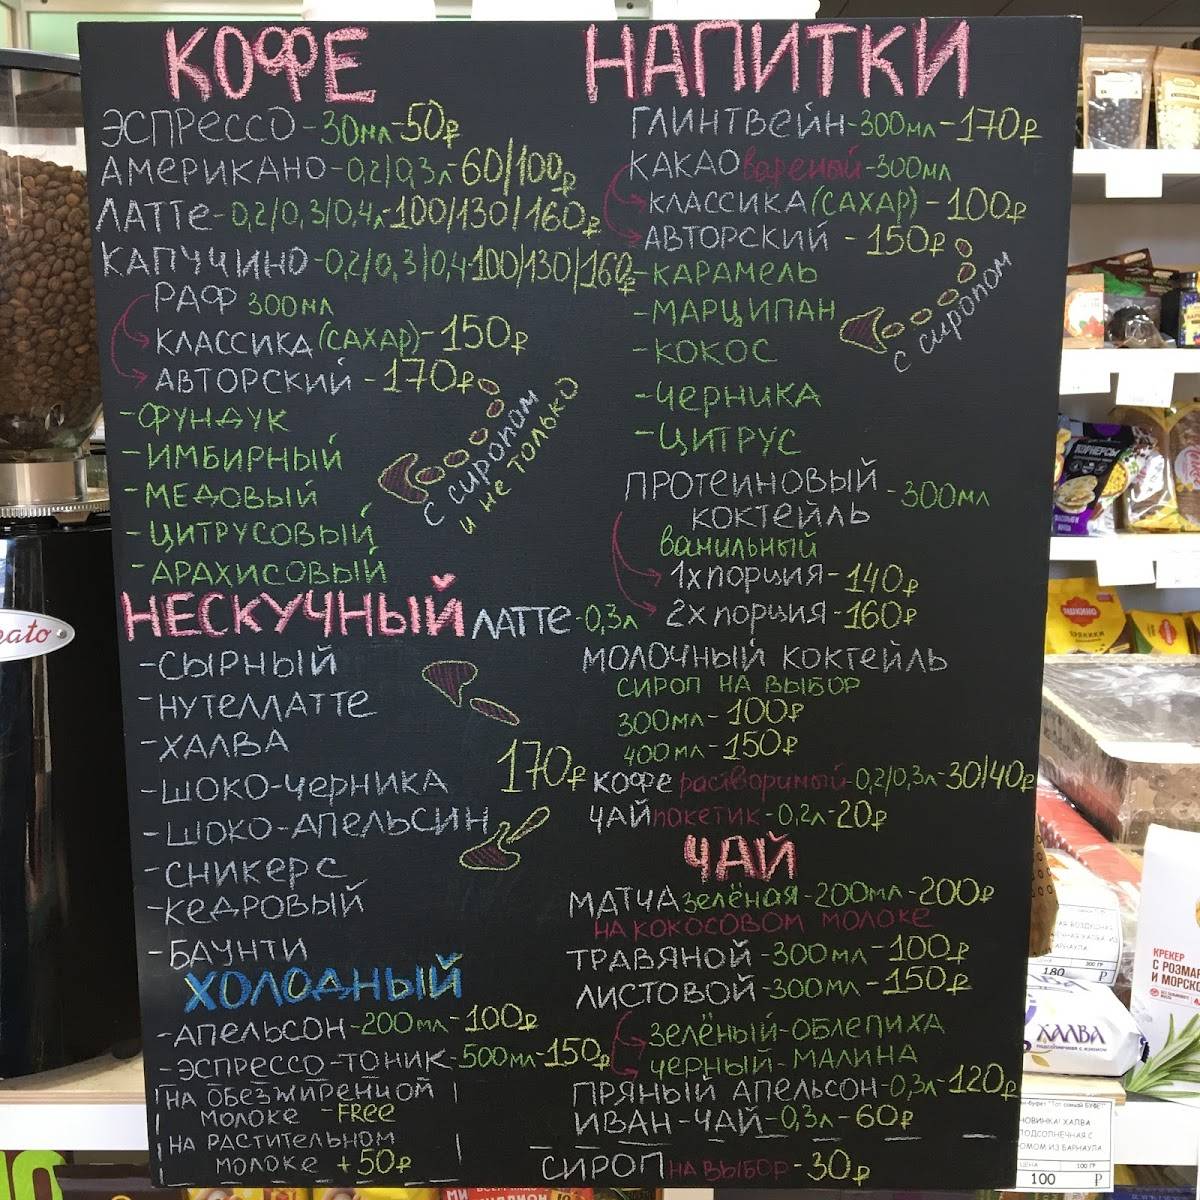 КОФЕ
ЭСПРЕССО - 30мл - 50₽
АМЕРИКАНО - 0,2/0,3л - 60/100₽
ЛАТТЕ - 0,2/0,3/0,4л - 100/130/160₽
КАПУЧИНО - 0,2/0,3/0,4 - 100/130/160₽
РАФ 300мл
КЛАССИКА (САХАР) - 150₽
АВТОРСКИЙ - 170₽
с сиропом
и не только
- ФУНДУК
- ИМБИРНЫЙ
- МЕДОВЫЙ
- ЦИТРУСОВЫЙ
- АРАХИСОВЫЙ
НЕСКУЧНЫЙ ЛАТТЕ - 0,3л
- СЫРНЫЙ
- НУТЕЛЛАТТЕ
- ХАЛВА
170₽
- ШОКО-ЧЕРНИКА
- ШОКО-АПЕЛЬСИН
- СНИКЕРС
- КЕДРОВЫЙ
- БАУНТИ
ХОЛОДНЫЙ
- АПЕЛЬСОН - 200мл - 100₽
- ЭСПРЕССО-ТОНИК - 500мл - 150₽
НА ОБЕЗЖИРЕННОМ
МОЛОКЕ - FREE
НА РАСТИТЕЛЬНОМ
МОЛОКЕ +50₽
НАПИТКИ
ГЛИНТВЕЙН - 300мл - 170₽
КАКАО вареный - 300мл
КЛАССИКА (САХАР) - 100₽
АВТОРСКИЙ - 150₽
с сиропом
- КАРАМЕЛЬ
- МАРЦИПАН
- КОКОС
- ЧЕРНИКА
- ЦИТРУС
ПРОТЕИНОВЫЙ - 300мл
КОКТЕЙЛЬ
ванильный
1х порция - 140₽
2х порция - 160₽
МОЛОЧНЫЙ КОКТЕЙЛЬ
СИРОП НА ВЫБОР
300мл - 100₽
400мл - 150₽
КОФЕ растворимый - 0,2/0,3л - 30/40₽
ЧАЙ пакетик - 0,2л - 20₽
ЧАЙ
МАТЧА зелёная - 200мл - 200₽
НА КОКОСОВОМ МОЛОКЕ
ТРАВЯНОЙ - 300мл - 100₽
ЛИСТОВОЙ - 300мл - 150₽
ЗЕЛЁНЫЙ - ОБЛЕПИХА
ЧЕРНЫЙ - МАЛИНА
ПРЯНЫЙ АПЕЛЬСОН - 0,3л - 120₽
ИВАН-ЧАЙ - 0,3л - 60₽
СИРОП НА ВЫБОР - 30₽
КОРНЕРСЫ
180 ₽
КРЕКЕР
С РОЗМАР
И МОРСКО
ХАЛВА
НОВИНКА! ХАЛВА
ПОДСОЛНЕЧНАЯ С
ИЗ БАРНАУЛА
ЦЕНА 100 ГР
100 ₽